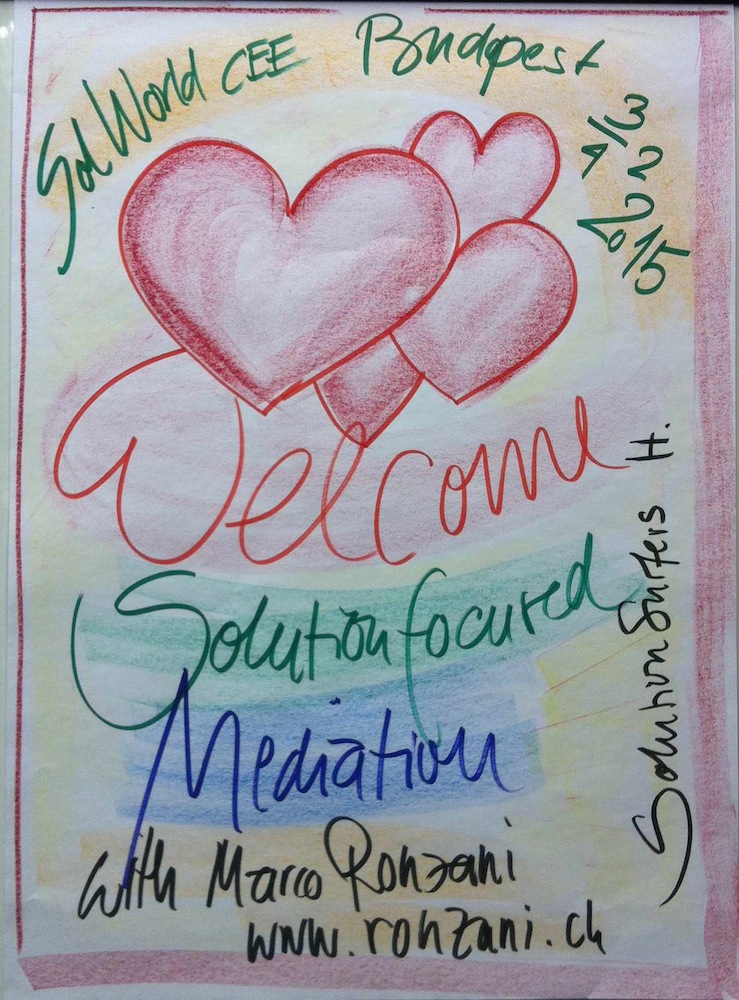 Sol World CEE Budapest
Welcome
Solutionfocused
Mediation
with Marco Ronzani
www.ronzani.ch
Solution Surfers H.